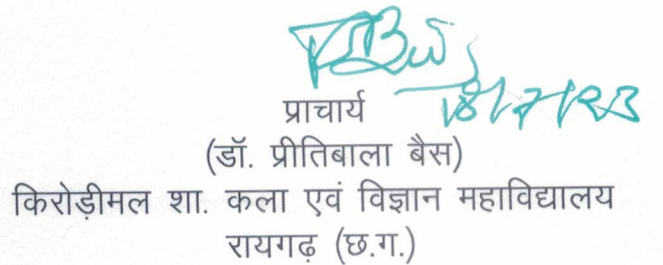 प्राचार्य
(डॉ. प्रीतिबाला बैस)
किरोड़ीमल शा. कला एवं विज्ञान महाविद्यालय
रायगढ़ (छ.ग.)